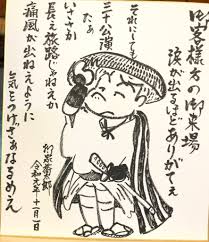 御客様方の御来場
涙が出るほどありがてえ
それにしても
三十公演たぁ
いささか
長え旅路じゃねえか
痛風が出ねえように
気をつけざぁなるめえ
令和六年十一月一日